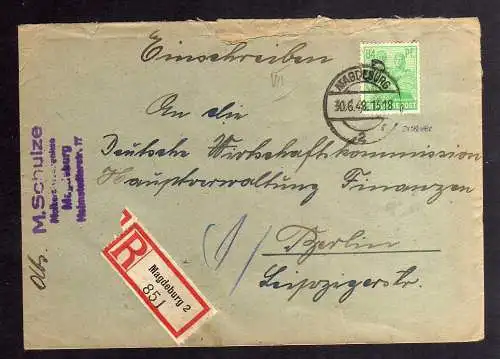 Einschreiben
84 PF
MAGDEBURG
30.6.48.15-18
2
POST
An die
Deutsche Wirtschaftskommission
Hauptverwaltung Finanzen
Berlin
Leipzigerstr.
Abs.
M. Schulze
Magdeburg
Helmstedterstr. 17
R
Magdeburg 2
851